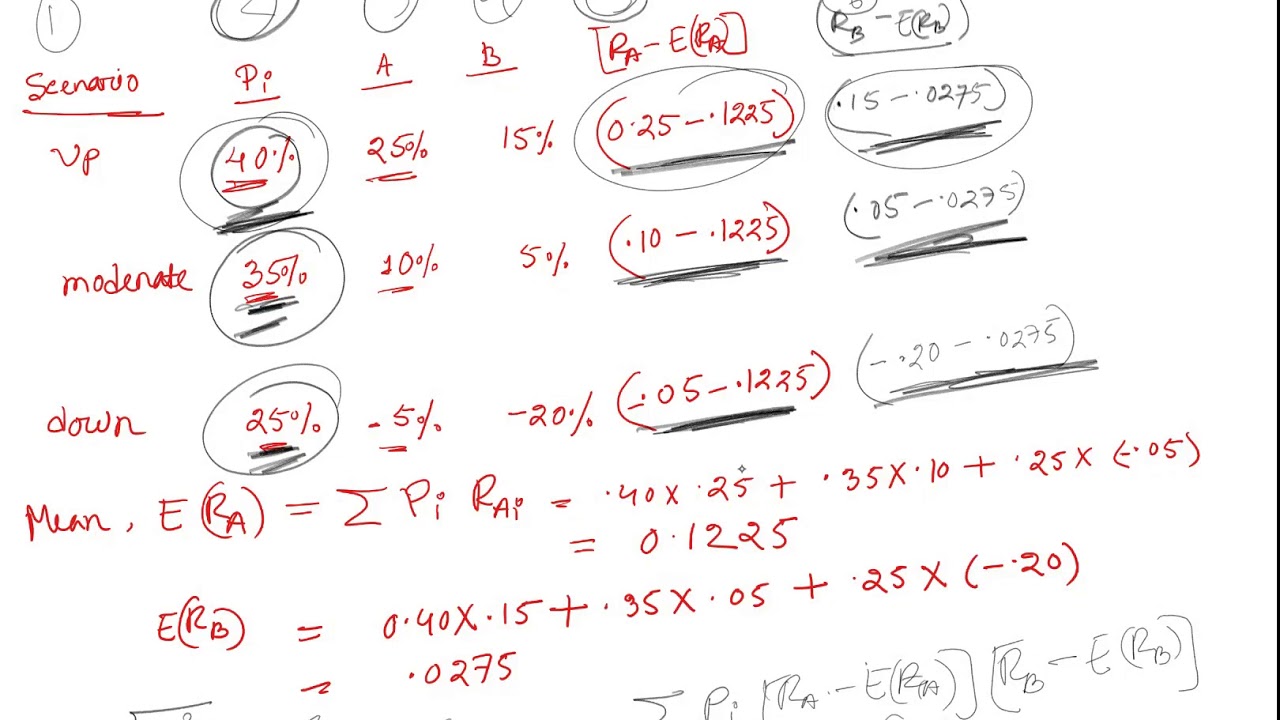 1 2 3 4 5 6
Scenario Pi A B [RA - E(RA)] RB - E(RB)
up 40% 25% 15% (0.25 - .1225) (.15 - .0275)
moderate 35% 10% 5% (.10 - .1225) (.05 - .0275)
down 25% -5% -20% (-.05 - .1225) (-.20 - .0275)
Mean, E(RA) = ∑ Pi RAi = .40 x .25 + .35 x .10 + .25 x (-.05)
= 0.1225
E(RB) = 0.40 x .15 + .35 x .05 + .25 x (-.20)
= .0275
∑ Pi [RA - E(RA)] [RB - E(RB)]